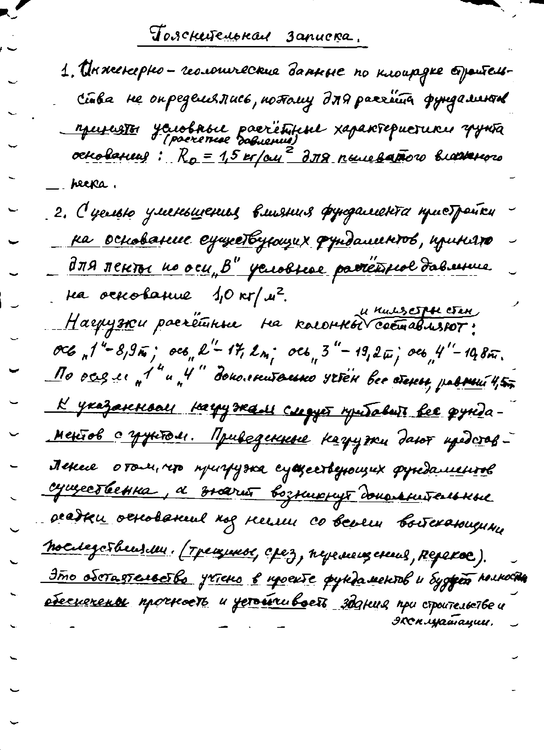 Пояснительная записка.
1. Инженерно-геологические данные по площадке строитель-
ства не определялись, потому для расчёта фундаментов
приняты условные расчётные характеристики грунта
(расчетное давление)
основания: R₀ = 1,5 кг/см² для пылеватого влажного
песка.
2. С целью уменьшения влияния фундамента пристройки
на основание существующих фундаментов, принято
для ленты по оси „В" условное расчётное давление
на основание 1,0 кг/м².
и пилястры стен
Нагрузки расчётные на колонны составляют:
ось „1"-8,9т; ось „2"-17,2т; ось „3"-19,2т; ось „4"-10,8т.
По осям „1" и „4" дополнительно учтён вес стены, равный 4,5т
К указанным нагрузкам следует прибавить вес фунда-
ментов с грунтом. Приведенные нагрузки дают представ-
ление о том, что пригрузка существующих фундаментов
существенна, а значит возникнут дополнительные
осадки основания под ними со всеми вытекающими
последствиями. (трещины, срез, перемещения, перекос).
Это обстоятельство учтено в проекте фундаментов и будет полностью
обеспечены прочность и устойчивость здания при строительстве и
эксплуатации.